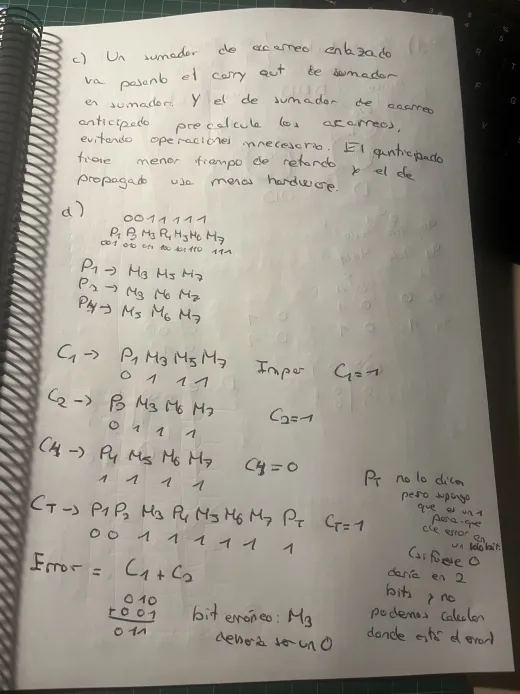 c) Un sumador de acarreo enlazado
va pasando el carry out de sumador
en sumador. Y el de sumador de acarreo
anticipado precalcula los acarreos,
evitando operaciones innecesarias. El anticipado
tiene menor tiempo de retardo y el de
propagado usa menos hardware.
d)
0 0 1 1 1 1 1
P1 P2 M3 P4 M5 M6 M7
001 010 011 100 101 110 111
P1 → M3 M5 M7
P2 → M3 M6 M7
P4 → M5 M6 M7
C1 → P1 M3 M5 M7 Impar C1=1
0 1 1 1
C2 → P2 M3 M6 M7 C2=1
0 1 1 1
C4 → P4 M5 M6 M7 C4=0
1 1 1 1
CT → P1 P2 M3 P4 M5 M6 M7 PT CT=1
0 0 1 1 1 1 1 1
PT no lo dicen
pero supongo
que es un 1
para que
de error en
un solo bit.
Si fuese 0
daría en 2
bits y no
podemos calcular
donde está el error!
Error = C1 + C2
010
+001
011
bit erróneo: M3
debería ser un 0